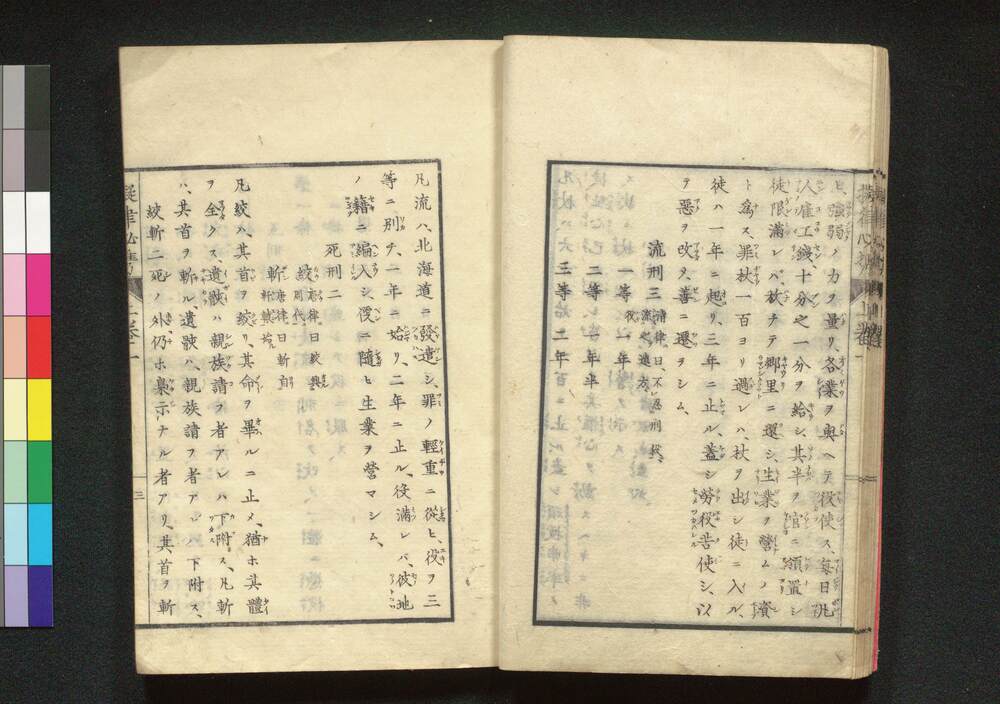 ヒ、強弱ノ力ヲ量リ、各業ヲ與ヘテ役使ス、毎日凡
人雇工錢十分之一分ヲ給シ、其半ヲ官ニ領置シ
徒限滿レハ、放チテ郷里ニ還シ、生業ヲ營ムノ資
ト爲ス、罪杖一百ヨリ過レハ、杖ヲ出シ徒ニ入ル、
徒ハ一年ニ起リ、三年ニ止ル、蓋シ勞役苦使シ、以
ヲ惡ヲ改ヲ、善ニ遷ヲシム、
流刑三
清律、日、不忍刑殺、
流之遠方、
一等
一年
役
二等
一年半
三等
二年
凡流ハ、北海道ニ發遣シ、罪ノ輕重ニ從ヒ、役ヲ三
等ニ別チ、一年ニ始リ、二年ニ止ル、役滿レバ、彼地
ノ籍ニ編入シ、便ニ隨ヒ生業ヲ營マシム、
死刑二
絞
唐律、日絞、興
周代、
斬
唐律、日斬自
軒轅、
凡絞ハ、其首ヲ絞リ、其命ヲ畢ルニ止メ、猶ホ其體
ヲ全クス、遺骸ハ、親族請フ者アレハ下附ス、凡斬
ハ、其首ヲ斬ル、遺骸ハ、親族請フ者アレハ下附ス、
絞斬二死ノ外仍ホ梟示ナル者アリ、其首ヲ斬
三